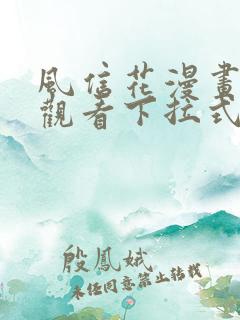 風信花漫畫
觀看下拉式
殷鳳娥
未經同意禁止轉載